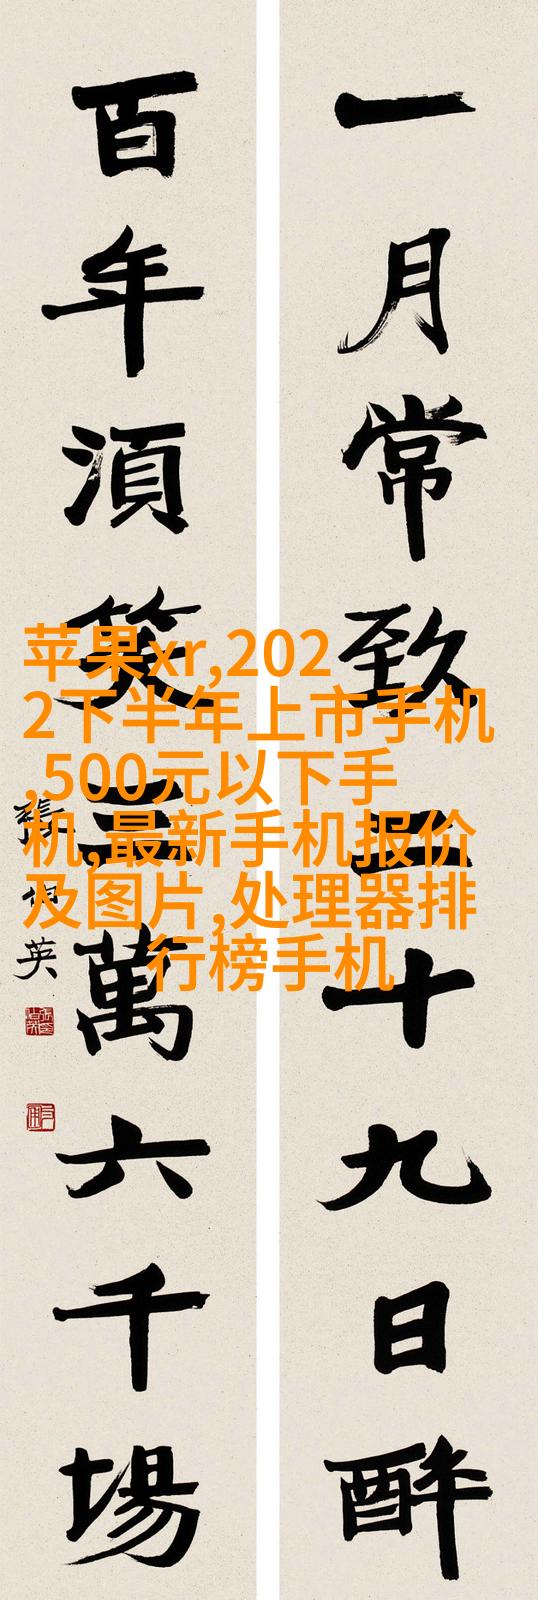 一月常致二十九日醉
百年湏笑三萬六千場
張伯英
苹果xr,202
2下半年上市手机
,500元以下手
机,最新手机报价
及图片,处理器排
行榜手机